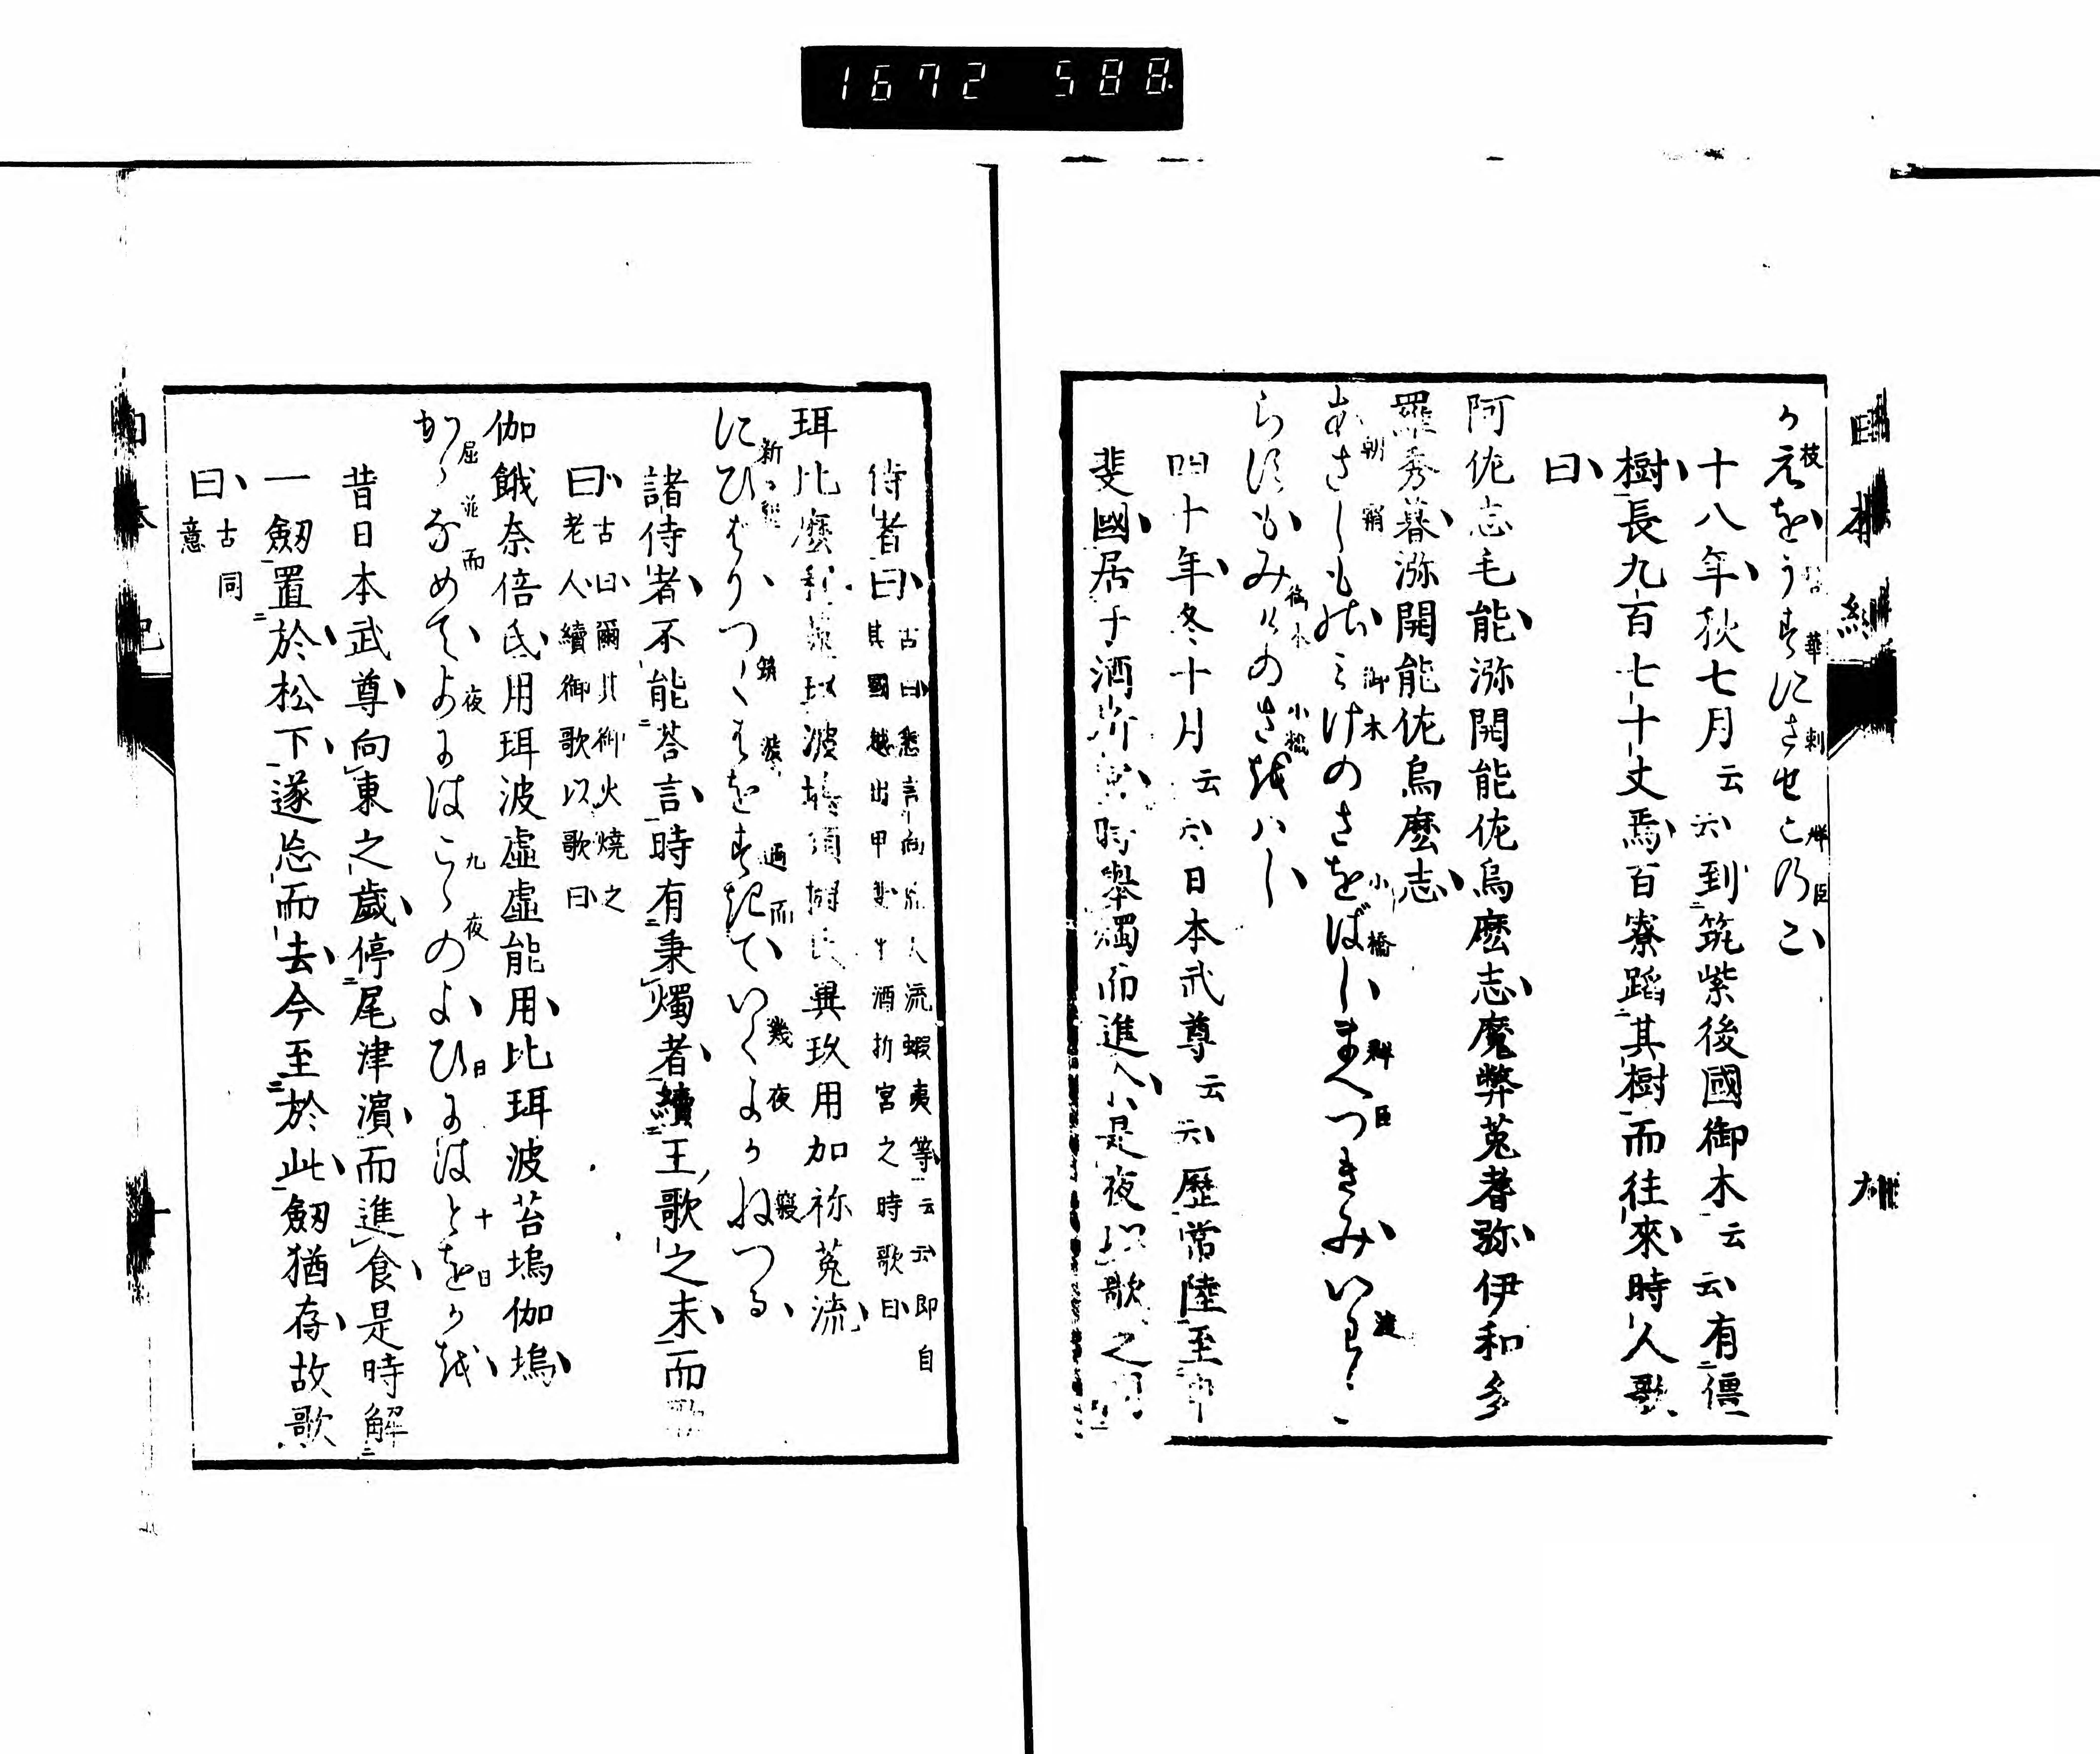 1672 588
日本紀 九
かえをうずにさせこのこ
枝 華 刺 群 臣
十八年秋七月云云到筑紫後國御木云云有僵
樹長九百七十丈焉百寮蹈其樹而往來時人歌
曰
阿佐志毛能瀰開能佐烏麼志魔弊菟耆弥伊和多
羅秀暮瀰開能佐烏麼志
あさしものみけのさをばしまへつきみいわた
朝 霜 御 木 小 橋 群 臣 渡
らすもみけのさをばし
四十年冬十月云云日本武尊云云歷常陸至甲
斐國居于酒折宮時舉燭而進食是夜以歌之問
侍者曰
古曰悉言向荒人流蝦夷等云云即自
其國越出甲斐坐酒折宮之時歌曰
珥比麼利菟玖波塢須擬氐異玖用加祢菟流
にひばりつくはをすぎていくよかねつる
新 筑 波 過 而 幾 夜 寢
諸侍者不能荅言時有秉燭者續王歌之末而歌
曰
古曰爾其御火燒之
老人續御歌以歌曰
伽餓奈倍氐用珥波虛虛能用比珥波苔塢伽塢
かがなめてよにはここのよひにはとをかを
屈 並 而 夜 九 夜 日 十 日
昔日本武尊向東之歲停尾津濱而進食是時解
一劔置於松下遂忘而去今至於此劔猶存故歌
曰
古同
意